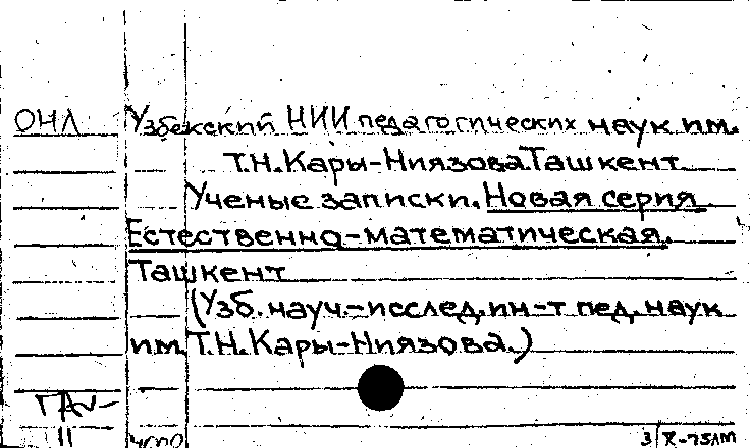 ОНЛ Узбекский НИИ педагогических наук им.
Т.Н.Кары-Ниязова.Ташкент
Ученые записки. Новая серия
Естественно-математическая.
Ташкент
(Узб. науч.-исслед.ин-т пед. наук
им. Т.Н.Кары-Ниязова.)
11